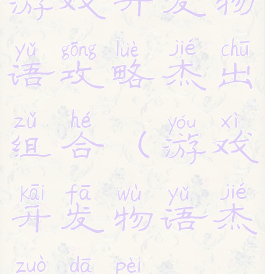 游戏开发物
yǔ gōng luè jié chū
语攻略杰出
zǔ hé yóu xì
组合（游戏
kāi fā wù yǔ jié
开发物语杰
zuò dā pèi